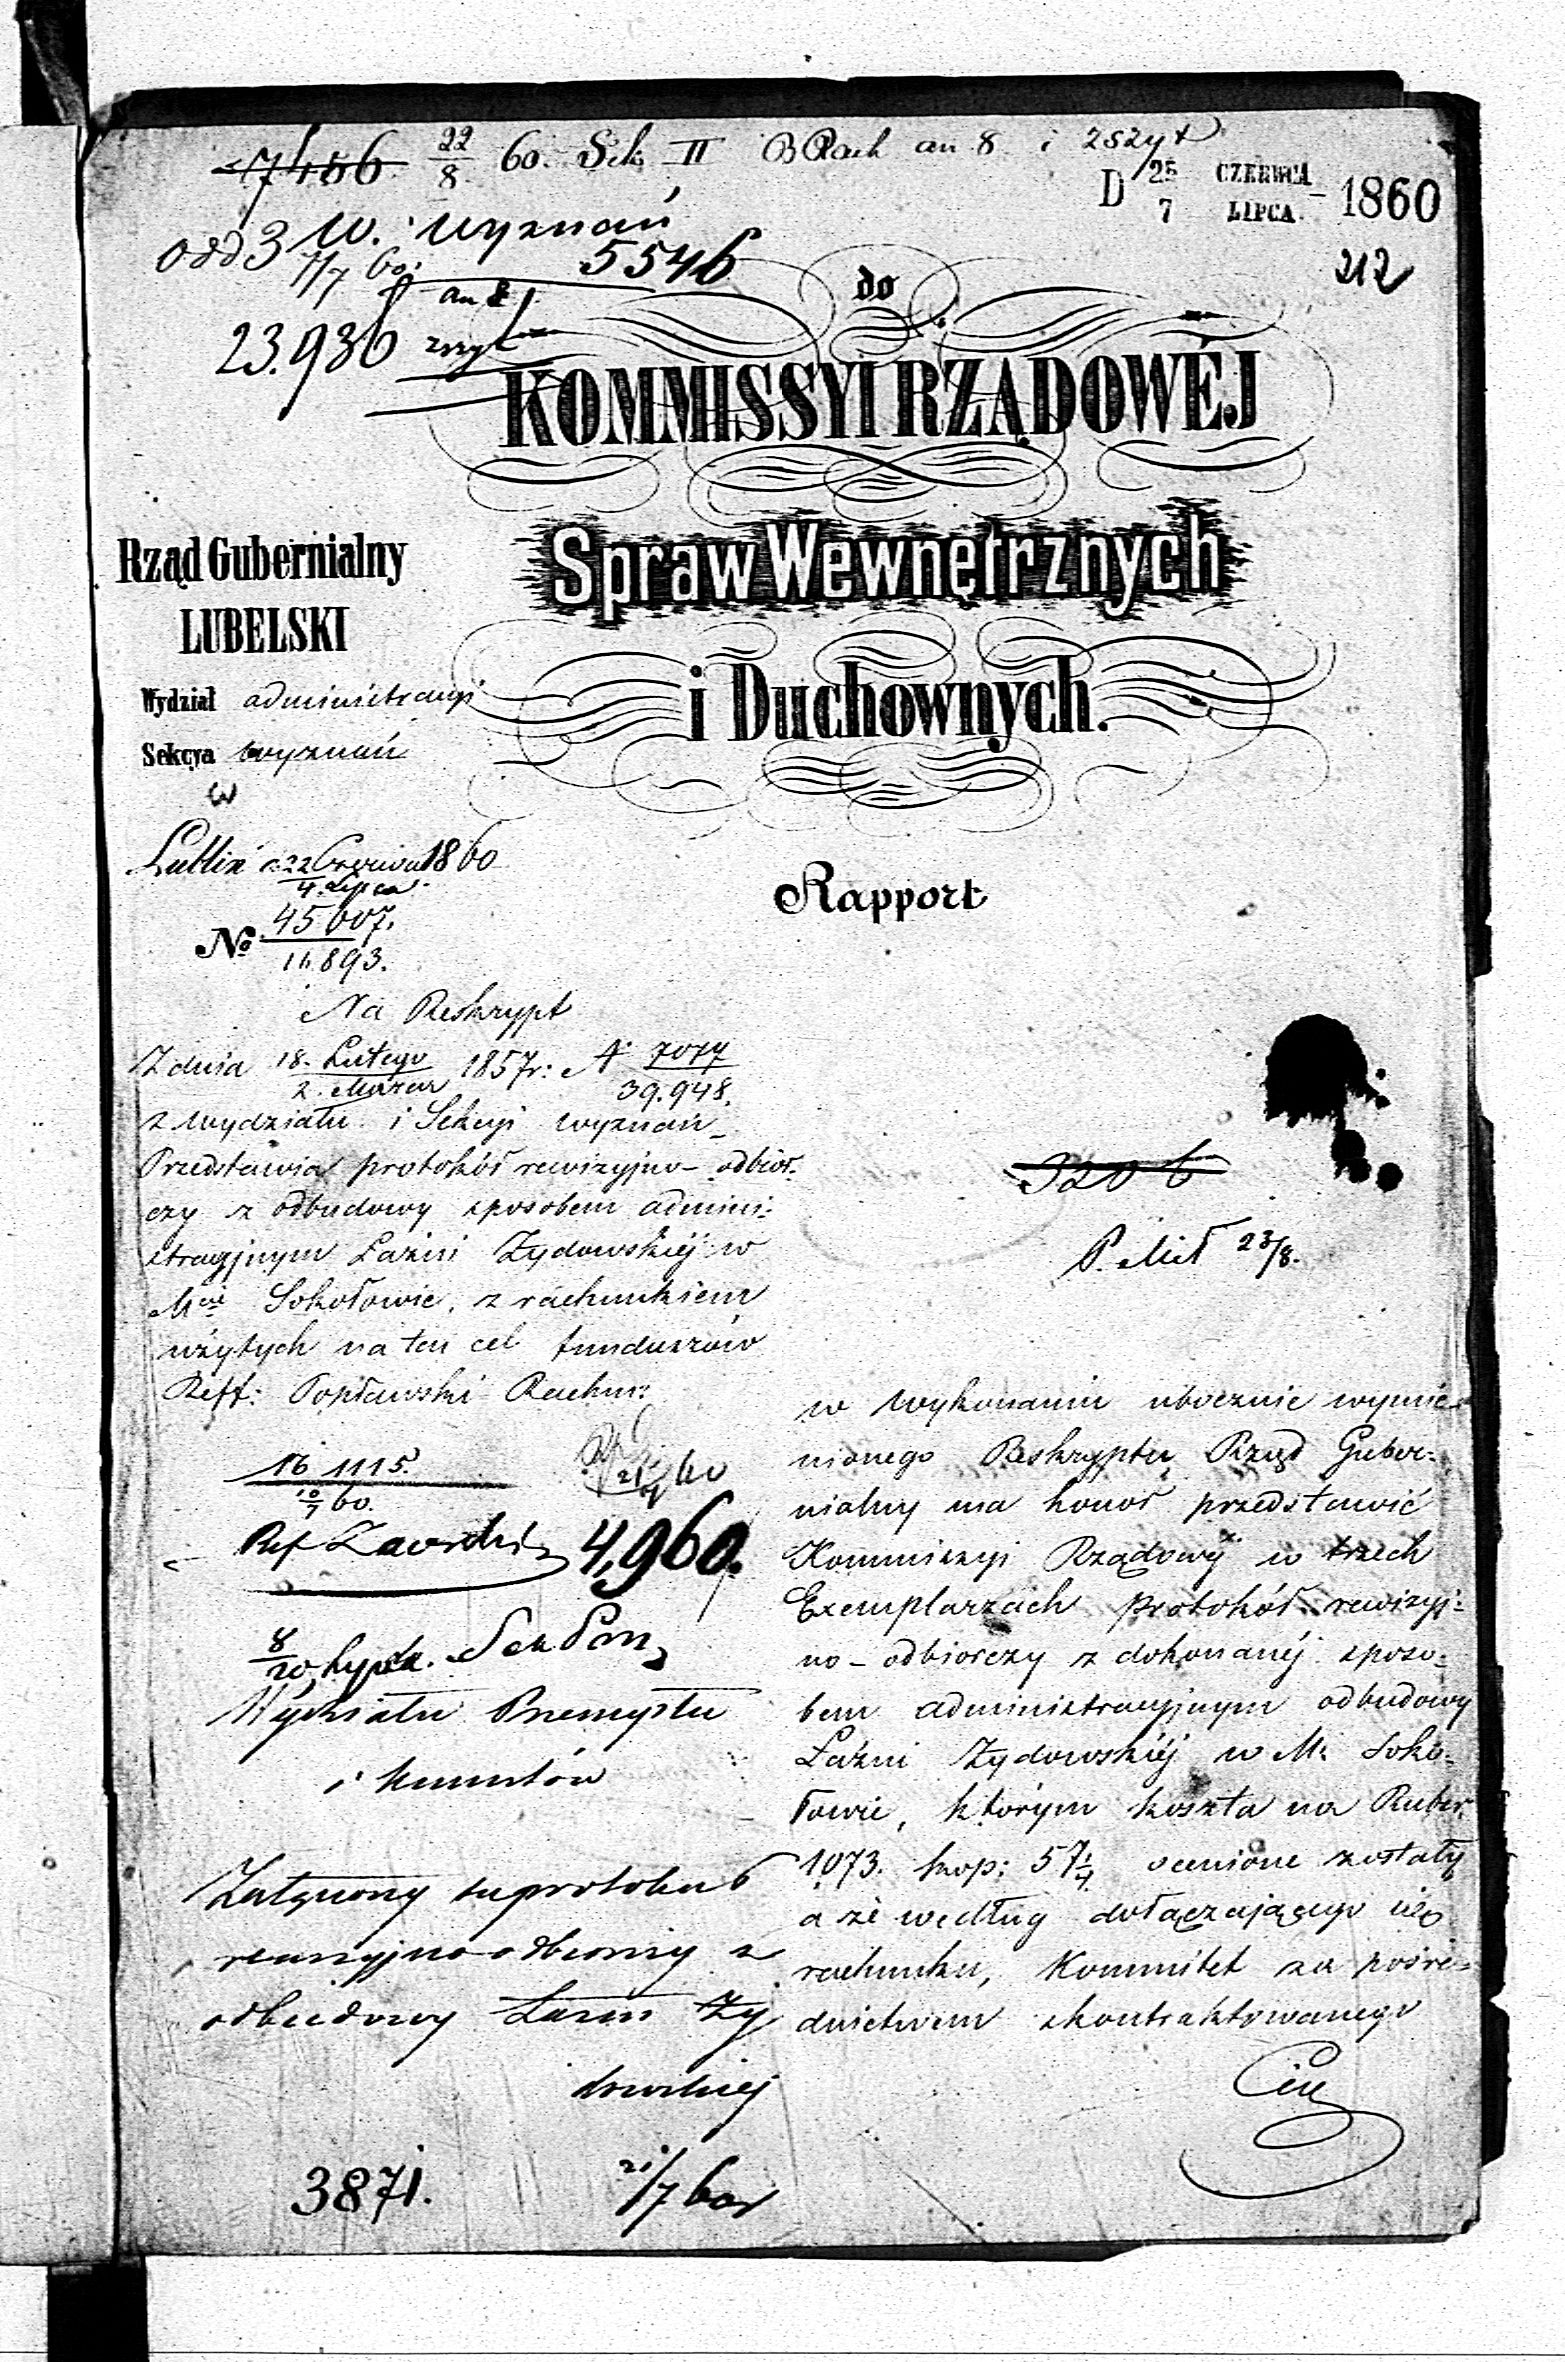 17456 22/8 60. Sek. II B Rach an 8 i zszyt
D 25/7 CZERWCA/LIPCA - 1860
W. Wyznań
odd 3 7/7 60. 5546
212
an 8
23.936 zszyt
do
KOMMISSYI RZĄDOWÉJ
Spraw Wewnętrznych
i Duchownych.
Rząd Gubernialny
LUBELSKI
Wydział administracyi
Sekcya wyznań
w
Lublin d. 22 Czerwca/4. Lipca 1860
Rapport
No 45607./14.893.
Na Reskrypt
Z dnia 18. Lutego/2. Marca 1857r: N 7077/39.948.
z Wydziału i Sekcyi Wyznań
Przedstawia protokół rewizyjno-odbior-
czy z odbudowy sposobem admini-
stracyjnym Łaźni Żydowskiéj w
Mcie Sokołowie, z rachunkiem
użytych na ten cel funduszów
Reff: Popławski Rachm:
16 1115.
10/7 60.
21/7 60
Ref Zawadzki
4,960.
8/20 Lypca. Sek
Wydziału Przemysłu
i kunsztów
Załączony tu protokuł
rewizyjno-odbiorczy z
odbudowy Łazni Ży
dowskiej
3871.
21/7 60
3206
P. Mił 23/8.
w wykonaniu ubocznie wymie-
nionego Reskryptu Rząd Guber-
nialny ma honor przedstawić
Kommissyi Rządowéj w trzech
Exemplarzach protokół rewizyj-
no-odbiorczy z dokonanéj sposo-
bem administracyjnym odbudowy
Łaźni Żydowskiéj w M. Soko-
łowie, którym koszta na Rubsr.
1073. kop: 57¼ ocenione zostały
a że według dołączającego się
rachunku, Kommitet za pośre-
dnictwem zkontraktowanego